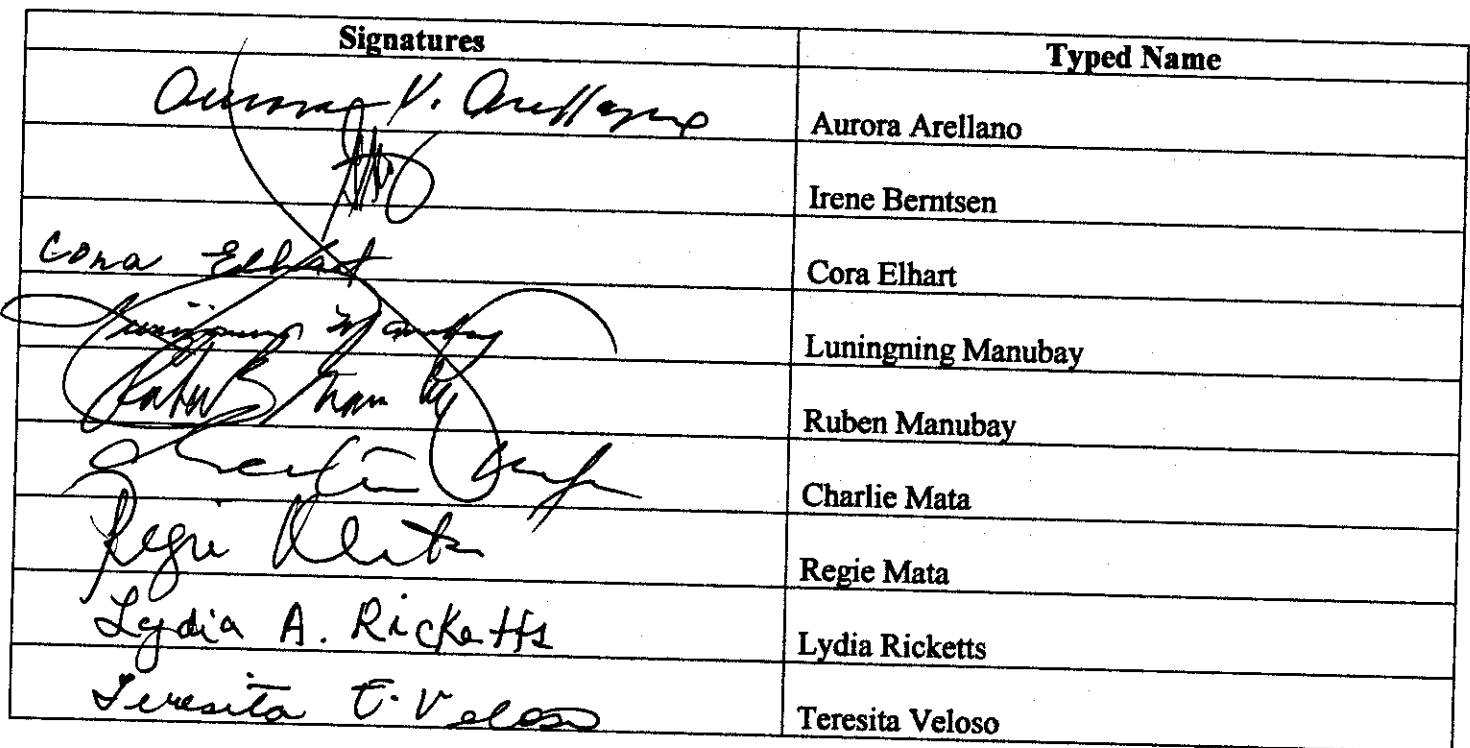 Signatures Typed Name
Aurora V. Arellano Aurora Arellano
Irene Berntsen
Cora Elhart Cora Elhart
Luningning Manubay Luningning Manubay
Ruben Manubay
Charlie Mata
Regie Mata Regie Mata
Lydia A. Ricketts Lydia Ricketts
Teresita E. Veloso Teresita Veloso